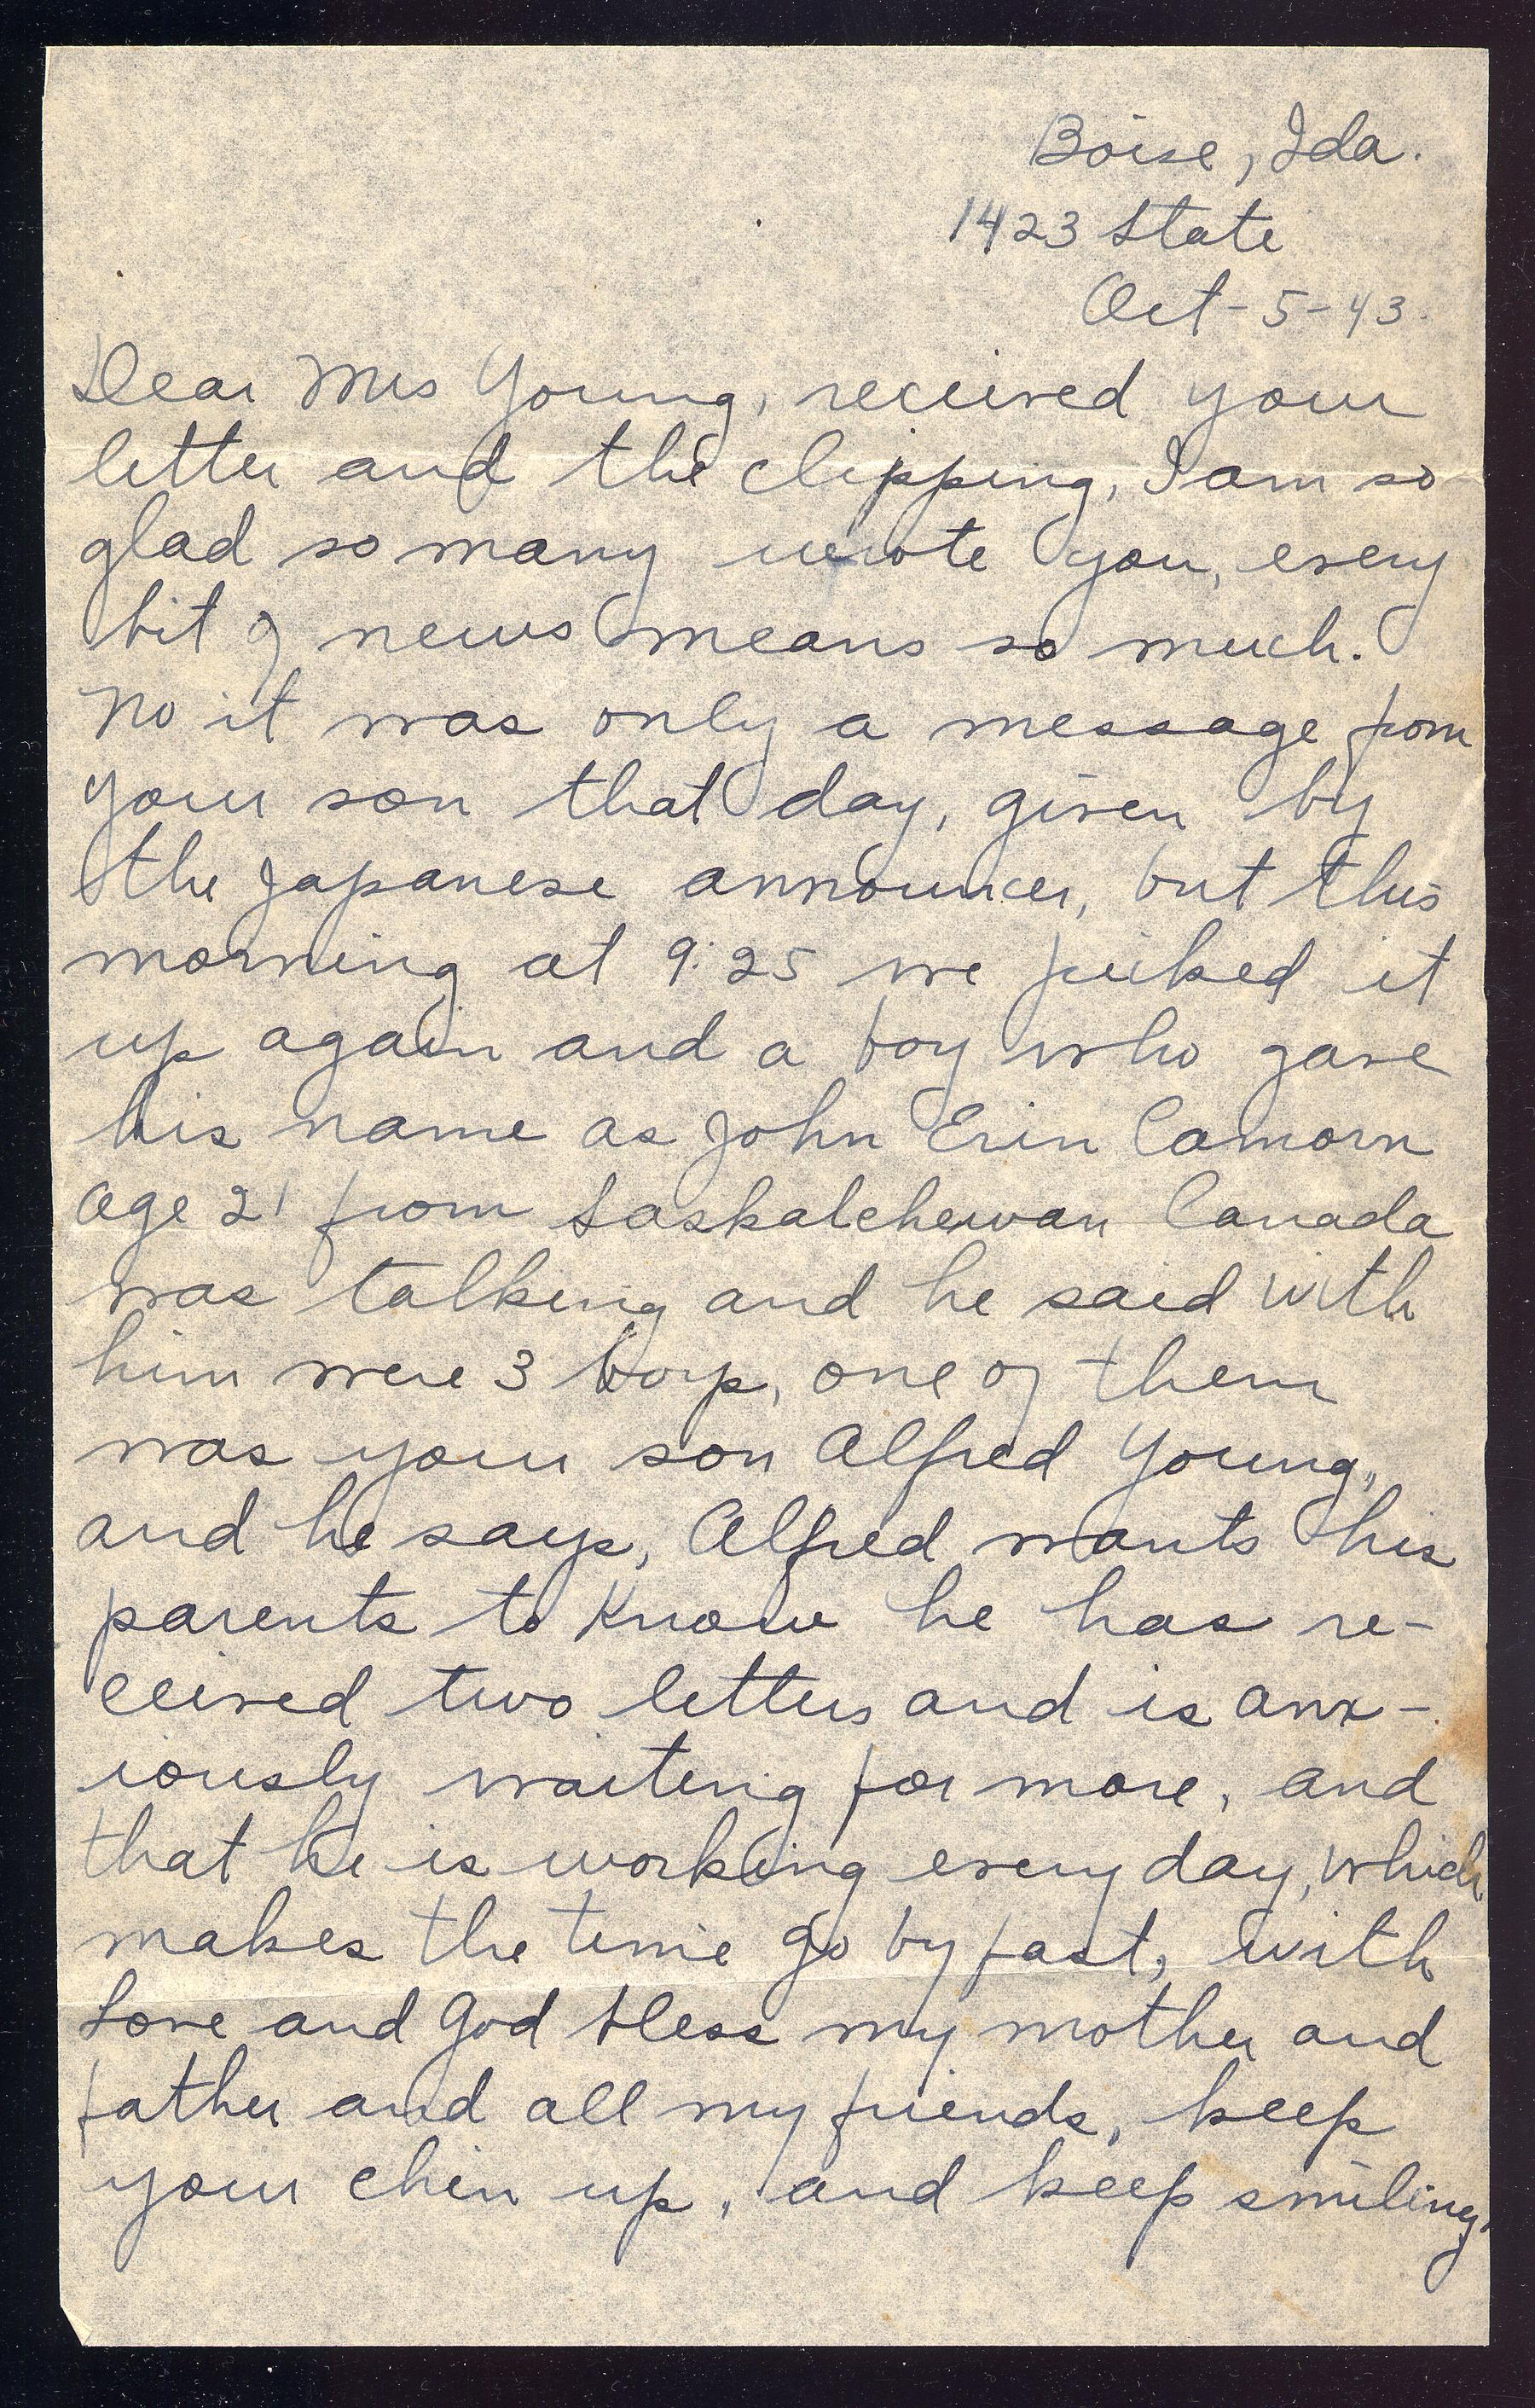 Boise, Ida.
1423 State
Oct-5-43.
Dear Mrs Young, received your
letter and the clipping, I am so
glad so many wrote you, every
bit of news means so much.
No it was only a message from
your son that day, given by
the Japanese announcer, but this
morning at 9:25 we picked it
up again and a boy who gave
his name as John Ervin Camorn
age 21 from Saskatchewan Canada
was talking and he said with
him were 3 boys, one of them
was your son Alfred Young,
and he says, Alfred wants his
parents to know he has re-
ceived two letters and is anx-
iously waiting for more, and
that he is working every day, which
makes the time go by fast, with
Love and God bless my mother and
father and all my friends, keep
your chin up, and keep smiling,